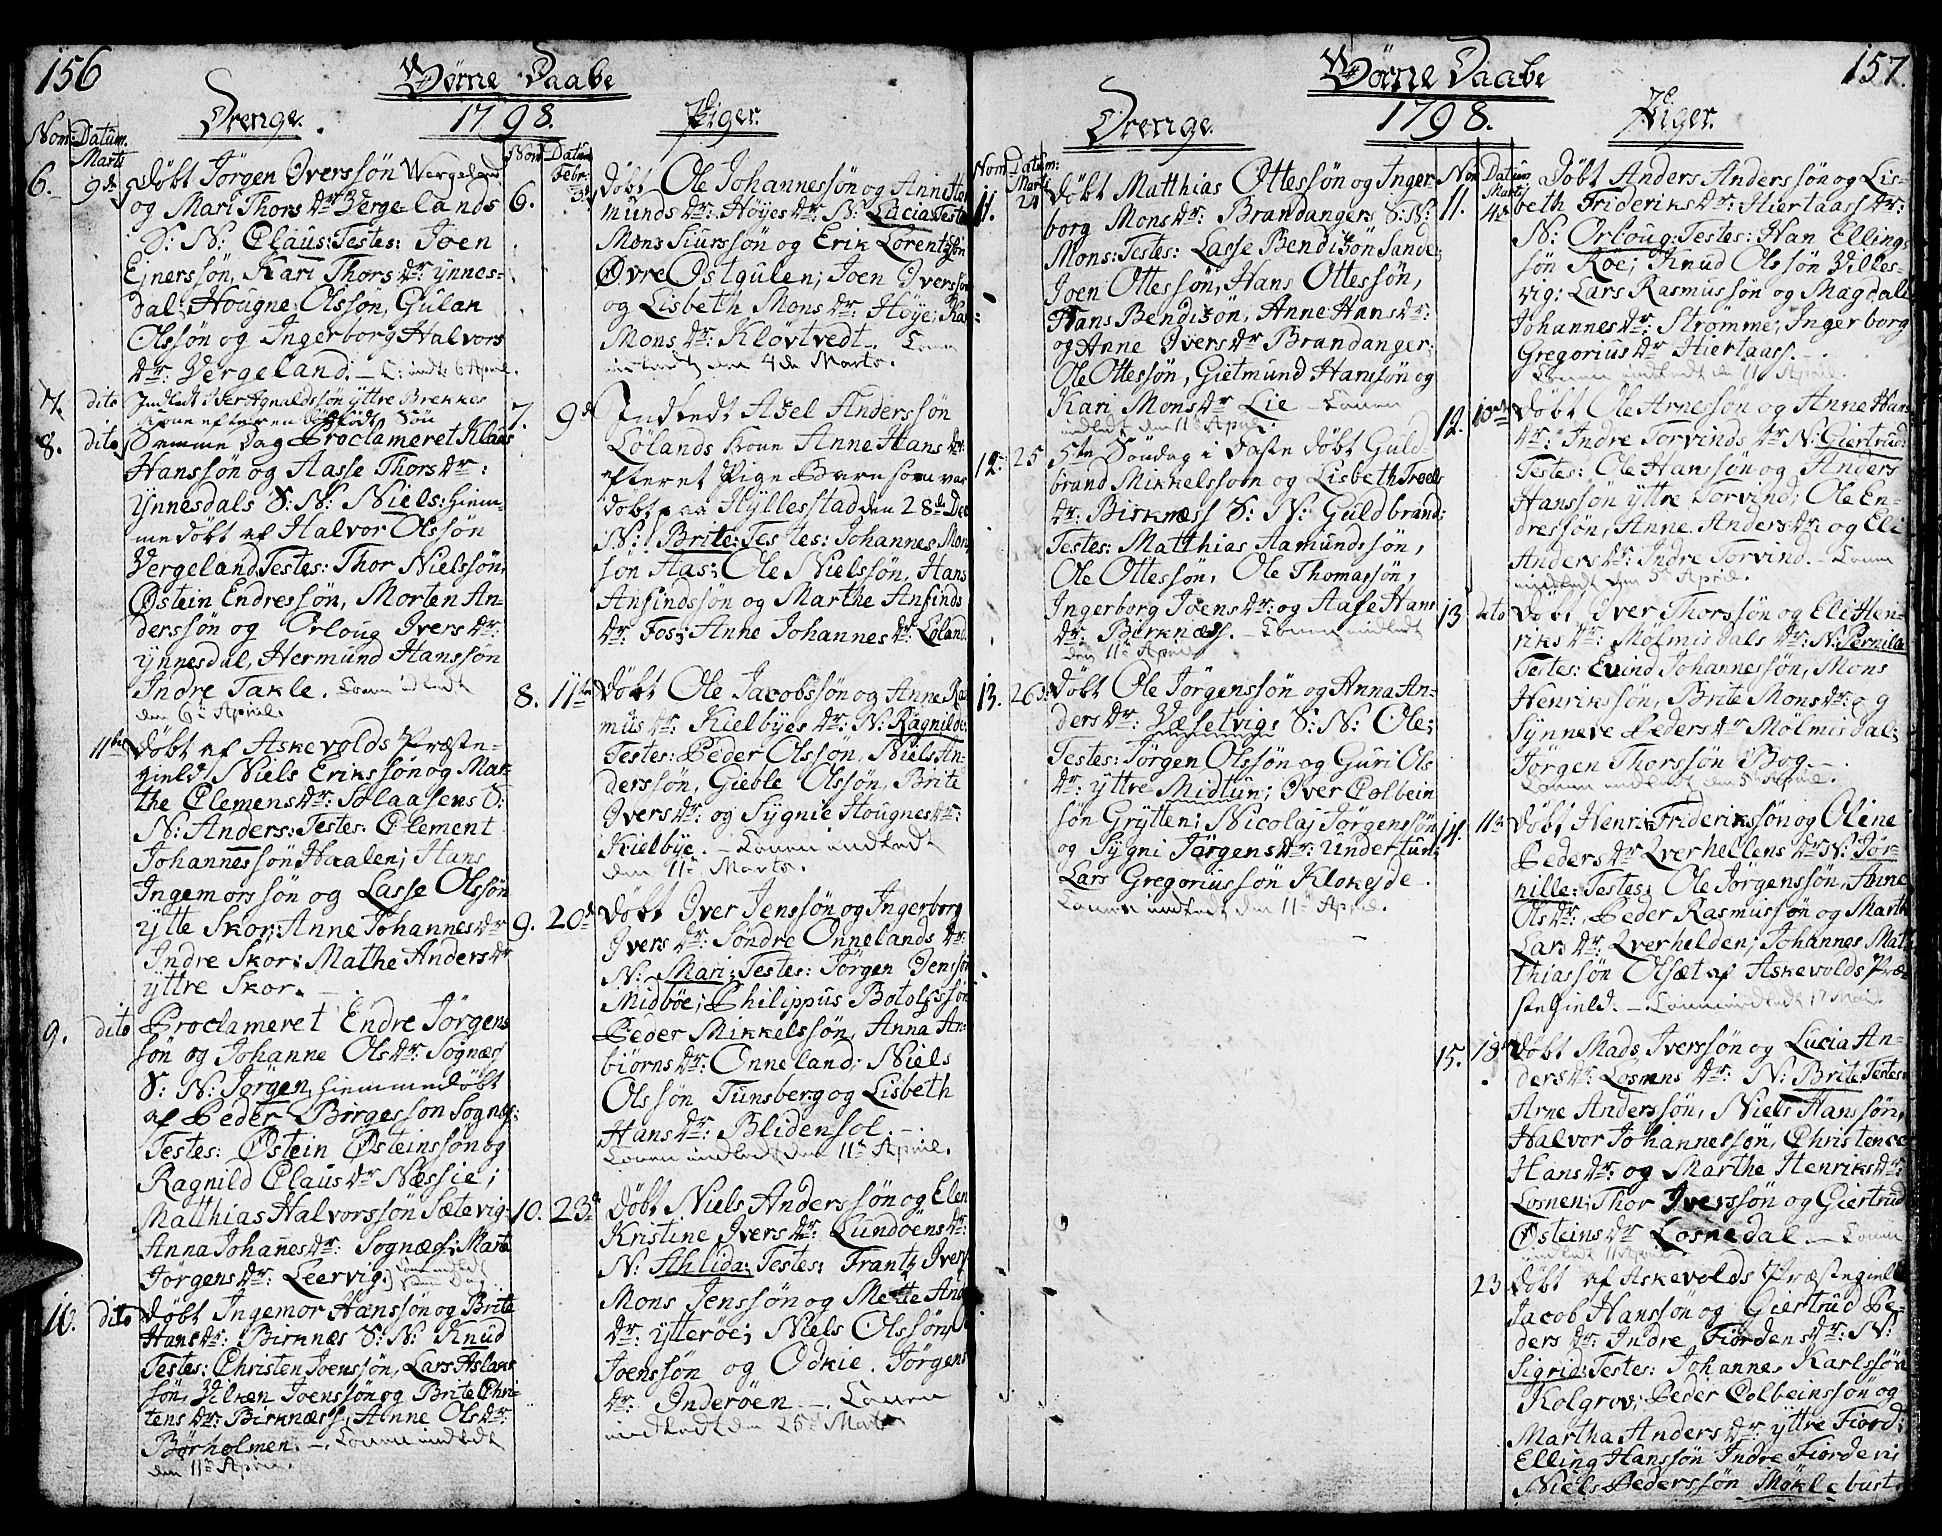 156
Børne Daabe
Drenge. 1798. Piger.
Nom: Datum.
Marts
6. 9de Døbt Jörgen Iverssön Wergeland
og Mari Thors dr. Verge-lands
S: N: Claus: Testes: Joen
Ejnerssön, Kari Thors dr: ynnes-
dal; Hougne Olsson, Gulan
Olssön og Ingerborg Halvors
dr: Vergeland. — K: indl: 6 April.
7. dito Indledt Iver Agnaldssön yttre Brekkes
Kone efter en dödfödt Sön
8. dito Samme Dag Proclameret Klaus
Hanssön og Aasse Thors dr:
Ynnesdals S: N: Niels: hiem-
medöbt af Halvor Olssön
Vergeland Testes: Thor Nielssön,
Østein Endressön, Morten An-
derssön og Orloug Ivers dr:
ynnesdal, Hermund Hanssön
Indre Takle. Konen indledt
den 6te April.
11te Døbt af Askevolds Præste-
gield Niels Erikssön og Mar-
the Clemens dr: Solaasens S:
N: Anders: Testes: Clement
Johannessön Haalen; Hans
Ingemorssön og Lasse Olssön
ytte Skor; Anne Johannes dr
Indre Skor; Mathe Anders dr
yttre Skor. —
9. dito Proclameret Endre Jörgens
sön og Johanne Ols dr: Sognæs
S: N: Jörgen, hiemmedöbt
af Peder Birgesson Sognæs:
Testes: Østein Østeinssön og
Ragnild Claus dr Næssie;
Matthias Halvorssön Sætevig;
Anna Johanes dr: Sognæs; Marta
Jörgens dr: Leervig; indledt
sam Dag
10. dito Døbt Ingemor Hanssön og Brite
Hans dr: Birknæs S: N: Knud
Testes: Christen Joenssön, Lars Aslak
sön, Vilken Joenssön og Brite Chri-
tens dr: Birknæss, Anne Ols dr:
Børholmen. —. Konen indledt
den 11te April.
Nom Datum
Febr:
6. Døbt Ole Johannessön og Anne Her
munds dr: Høyes dr: N: Lucia: Testes
Mons Siurssön og Erik Lorentzsön
Øvre Østgulen; Joen Iverssön
og Lisbeth Mons dr: Høye; Kar
Mons dr: Kløvtvedt. Konen
indledt den 4de Marts.
7. 9de Indledt Axel Anderssön
Lølands Kone Anne Hans dr:
efteret Pige Barn som var
döbt paa Hyllestad den 28de Dec
N: Brite: Testes: Johannes Mon
son Aas; Ole Nielssön, Hans
Anfindssön og Marthe Anfinds
dr: Foss; Anne Johannes dr: Løland.
8. 11te Døbt Ole Jacobssön og Anne Ras
mus dr: Kielbyes dr: N: Ragnilde:
Testes: Peder Olsson, Niels An-
derssön, Gieble Olssön, Brite
Ivers dr: og Sygnie Hougnes dr:
Kielbye. — Konen indledt
den 11te Marts.
9. 20de Døbt Iver Jenssön og Ingerborg
Ivers dr: Søndre Onnelands dr:
N: Mari; Testes: Jörgen Jenssön
Midböe; Philippus Botolfssön
Peder Mikkelssön, Anna An-
biörns dr: Onneland; Niels
Olssön Tunsberg og Lisbeth
Hans dr: Blidensol. —.
Konen indledt den 11te April.
10. 23de Døbt Niels Anderssön og Elen
Kristine Ivers dr: Lundøens dr:
N: Ahlida; Testes: Frantz Ivers
Mons Jenssön og Mette And
dr: ytterøe; Niels Olssöns
Joenssön og Odkie. Jörgens
dr: Inderøen —. Konen
indledt den 25de Marts
157.
Børne Daabe
Drenge. 1798. Piger.
Nom Datum:
Marts
11. 24 Døbt Matthias Ottessön og Inger
borg Mons dr: Brandangers S: N:
Mons: Testes: Lasse Bendixön Sande;
Joen Ottessön, Hans Ottessön,
Hans Bendixön, Anne Hans dr:
og Anne Ivers dr Brandanger;
Ole Ottessön, Gietmund Hanssön og
Kari Mons dr Lie — Konen
indledt den 11te April.
12. 25 5te Söndag i Faste döbt Guld-
brand Mikkelsson og Lisbeth Troels
dr: Birknæss S: N: Guldbrand;
Testes: Matthias Aamundssön,
Ole Ottessön, Ole Thomassön,
Ingerborg Joens dr: og Aase Hans
dr: Birknæss. — Konen indledt
den 11te April
13. 26de Døbt Ole Jörgenssön og Anna An-
ders dr: Væsetvigs S: N: Ole;
Testes: Jörgen Olssön og Guri Ols
dr: yttre Midtun; Iver Colbein
sön Grytten; Nicolaj Jörgenssön
og Sygni Jörgens dr: Undertun;
Lars Gregoriussön Klokejde.
Konen indledt den 11te April.
No Datum
Marts
11. 4de Døbt Anders Anderssön og Lis-
beth Frideriks dr: Hiertaass dr:
N: Orloug: Testes: Han Ellings
sön Roe; Knud Olssön Villes-
vig; Lars Rasmussön og Magdale
Johannes dr: Strømme; Ingerborg
Gregorius dr Hiertaass. —.
Konen indledt d 11te April.
12. 10de Døbt Ole Arnessön og Anne Hans
dr: Indre Torvinds dr N: Giertrud:
Testes: Ole Hanssön og Anders
Hanssön yttre Torvind; Ole En-
dressön, Anne Anders dr: og Eli
Anders dr: Indre Torvind. — Konen
indledt den 5te April.
13. dito Døbt Iver Thorssön og Eli Hen-
riks dr: Mølmisdals dr: N: Pernille
Testes: Evind Johannessön, Mons
Henrikssön, Brite Mons dr: og
Synneve Peders dr Mölmisdal;
Jörgen Thorssön Bog. —.
Konen indledt den 5te April.
14. 11te Døbt Henri Friderikssön og Olene
Peders dr Qverhellens dr N: Jør-
nille: Testes: Ole Jörgenssön, Anne
Ols dr:, Peder Rasmussön og Marthe
Lars dr: Qverhelden; Johannes Mat
thiassön Olsæt af Askevolds Præ-
stegield. — Konen indledt 17 Maii
15. 18de Døbt Mads Iverssön og Lucia An-
ders dr: Losnens dr: N: Brite Testes:
Arne Anderssön, Niels Hanssön,
Halvor Johannessön, Christence
Hans dr: og Marthe Henriks dr:
Losnen; Thor Iverssön og Giertrud
Østeins dr Losnedal. — Konen
indledt 11 April
23. Døbt af Askevolds Præstegield
Jacob Hanssön og Giertrud Pe-
ders dr: Indre Fiordens dr: N:
Sigrid: Testes: Johannes Karlssön
Kolgrov; Peder Colbeinssön og
Martha Anders dr: yttre Fiord:
Elling Hanssön Indre Fiorden;
Niels Pederssön Møklebust